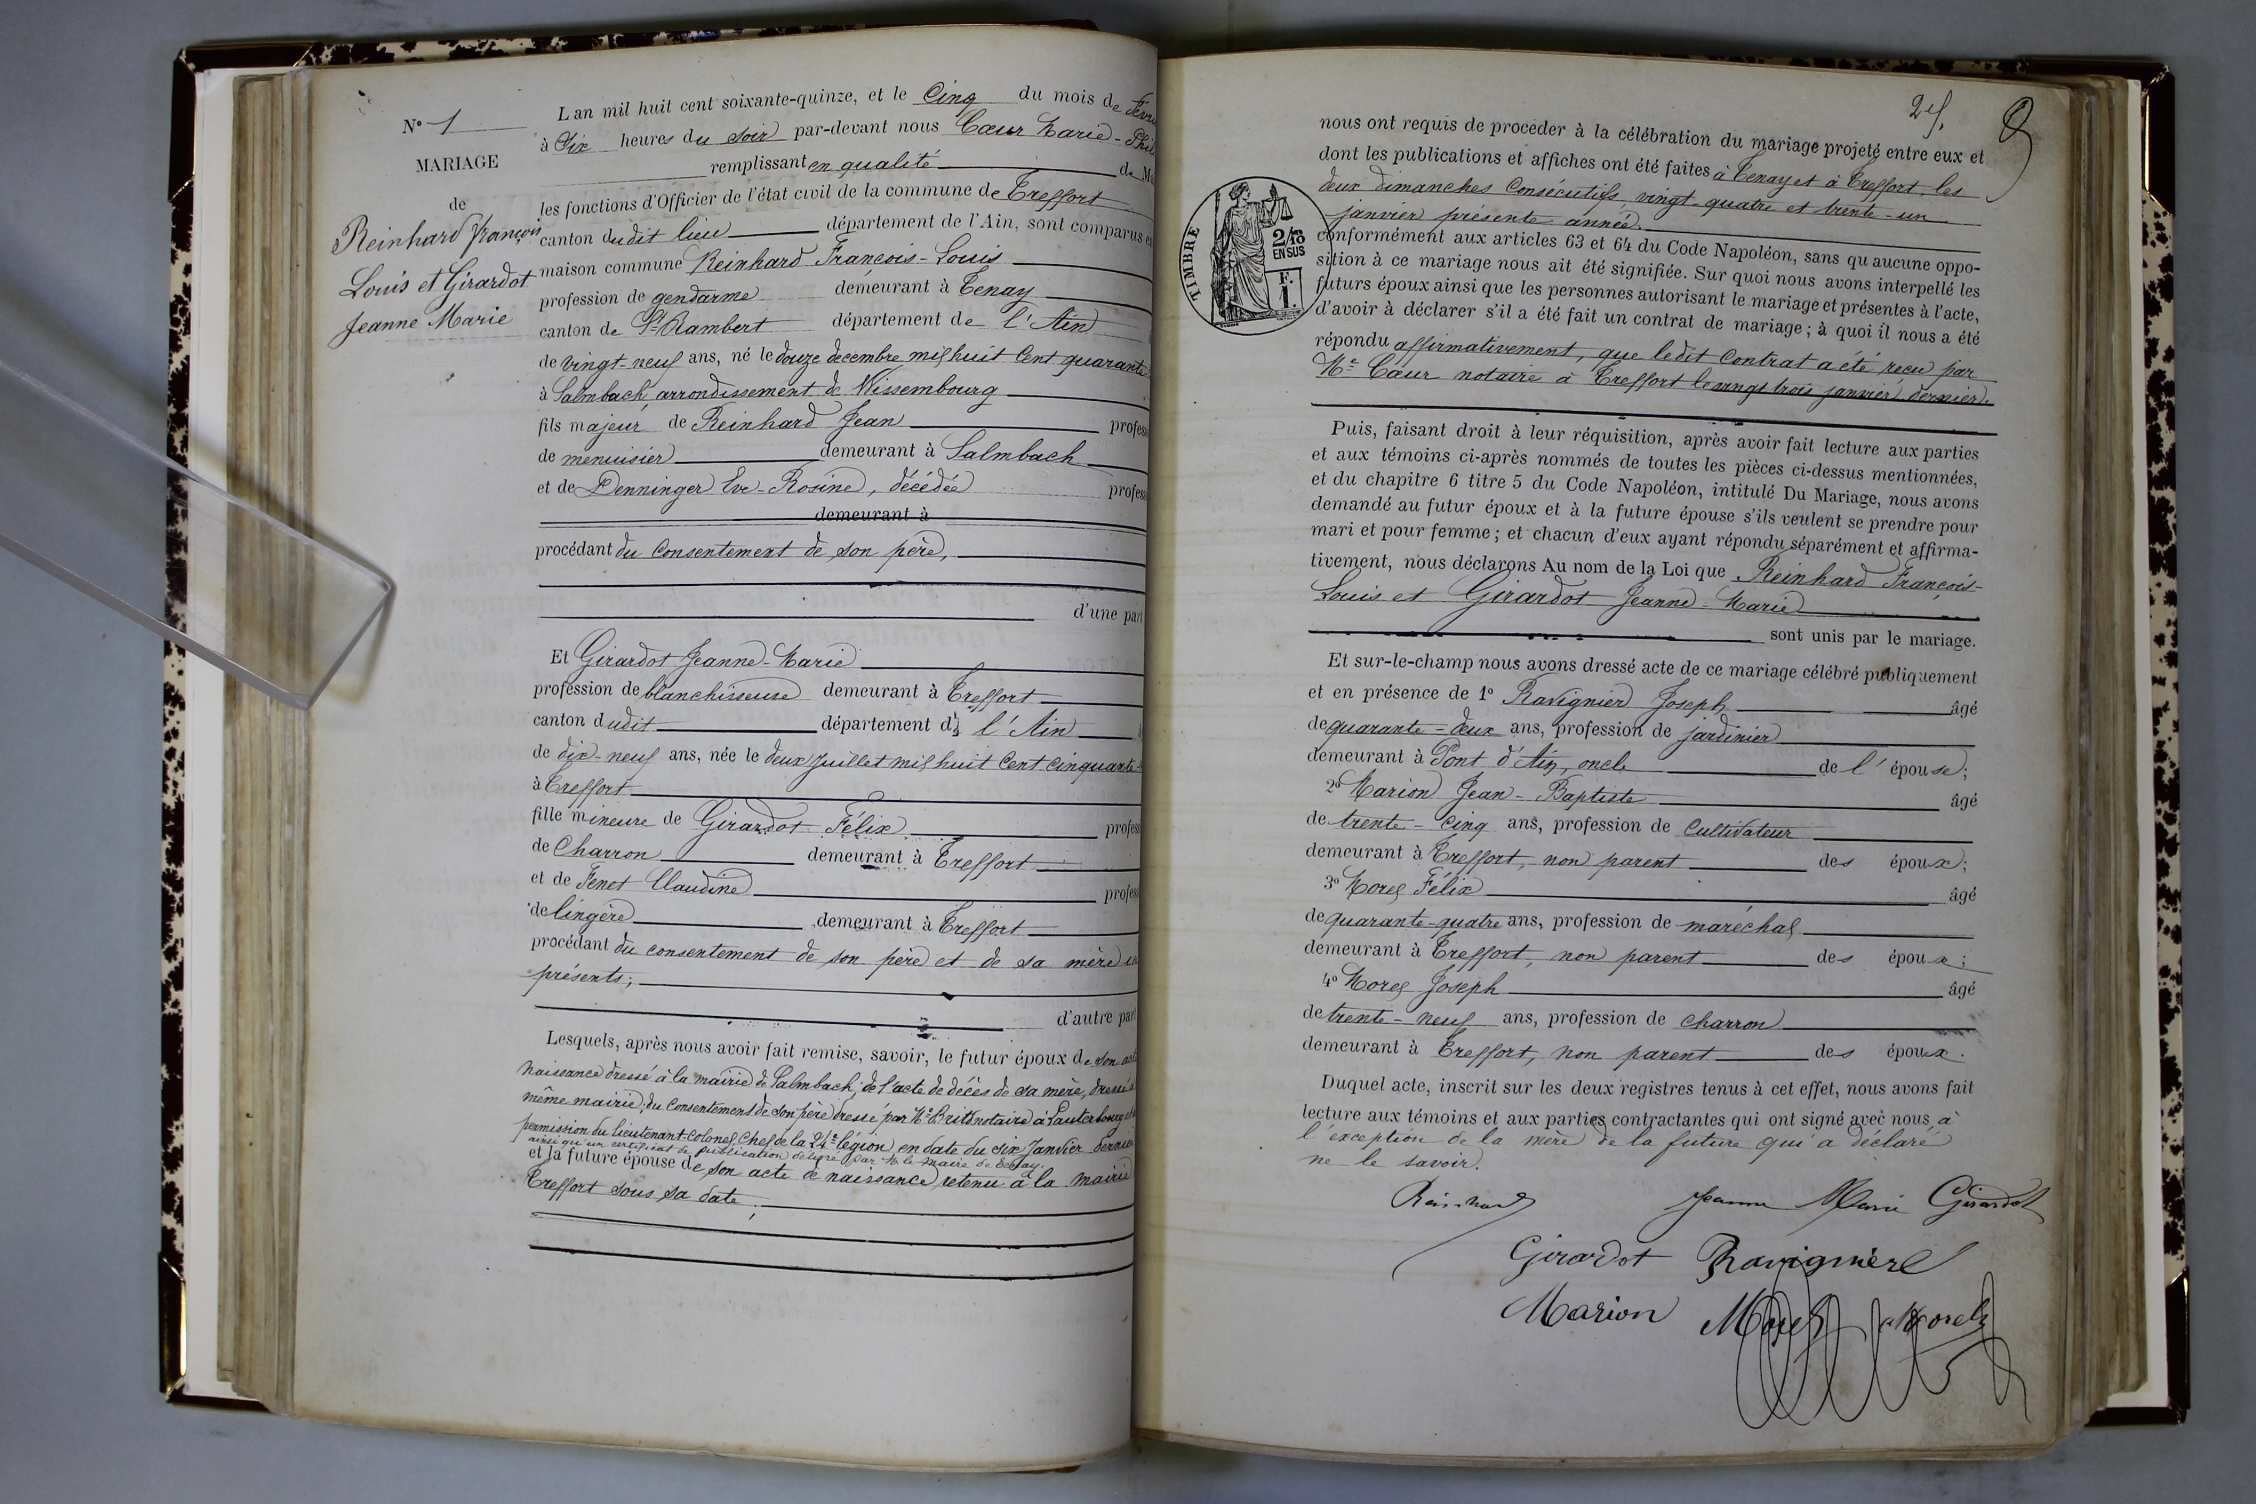 N° 1
MARIAGE
de
Reinhard François
Louis et Girardot
Jeanne Marie
L an mil huit cent soixante-quinze, et le Cinq du mois de Févri
à Six heures du soir par-devant nous Cœur Marie-Phil
remplissant en qualité de M
les fonctions d'Officier de l'état civil de la commune de Treffort
canton dudit lieu département de l'Ain, sont comparus en
maison commune Reinhard François-Louis
profession de gendarme demeurant à Tenay
canton de St Rambert département de l'Ain
de vingt-neuf ans, né le douze decembre mil huit Cent quarante
à Salmbach, arrondissement de Wissembourg
fils majeur de Reinhard Jean profess
de menuisier demeurant à Salmbach
et de Denninger Eve-Rosine, décédée profess
demeurant à
procédant du Consentement de son père,
d'une part
Et Girardot Jeanne-Marie
profession de blanchisseuse demeurant à Treffort
canton dudit département de l'Ain
de dix-neuf ans, née le deux Juillet mil huit Cent Cinquante
à Treffort
fille mineure de Girardot Félix profess
de Charron demeurant à Treffort
et de Fenet Claudine profess
de lingère demeurant à Treffort
procédant du consentement de son père et de sa mère ici
présents;
d'autre part
Lesquels, après nous avoir fait remise, savoir, le futur époux de son acte
Naissance dressé à la mairie de Salmbach, de l'acte de décès de sa mère, dressé à
même mairie, du Consentement de son père dressé par Me notaire à Lauterbourg
permission du lieutenant-Colonel Chef de la 24e légion en date du six Janvier dernier
ainsi qu'un certificat de publication délivré par M. le maire de Tenay.
et la future épouse de son acte de naissance retenu à la mairie
Treffort sous sa date;
25.
nous ont requis de procéder à la célébration du mariage projeté entre eux et
dont les publications et affiches ont été faites à Tenay et à Treffort, les
deux dimanches Consécutifs, vingt-quatre et trente-un
janvier présente année.
TIMBRE
2/10
EN SUS
F.
1.
conformément aux articles 63 et 64 du Code Napoléon, sans qu aucune oppo-
sition à ce mariage nous ait été signifiée. Sur quoi nous avons interpellé les
futurs époux ainsi que les personnes autorisant le mariage et présentes à l'acte,
d'avoir à déclarer s'il a été fait un contrat de mariage; à quoi il nous a été
répondu affirmativement, que ledit Contrat a été reçu par
Me Cœur notaire à Treffort le vingt trois janvier dernier.
Puis, faisant droit à leur réquisition, après avoir fait lecture aux parties
et aux témoins ci-après nommés de toutes les pièces ci-dessus mentionnées,
et du chapitre 6 titre 5 du Code Napoléon, intitulé Du Mariage, nous avons
demandé au futur époux et à la future épouse s'ils veulent se prendre pour
mari et pour femme; et chacun d'eux ayant répondu séparément et affirma-
tivement, nous déclarons Au nom de la Loi que Reinhard François-
Louis et Girardot Jeanne-Marie
sont unis par le mariage.
Et sur-le-champ nous avons dressé acte de ce mariage célébré publiquement
et en présence de 1° Ravignier Joseph âgé
de quarante-deux ans, profession de jardinier
demeurant à Pont d'Ain, oncle de l'épouse;
2° Marion Jean-Baptiste âgé
de trente-cinq ans, profession de Cultivateur
demeurant à Treffort, non parent des époux;
3° Morel Félix âgé
de quarante-quatre ans, profession de maréchal
demeurant à Treffort, non parent des époux;
4° Morel Joseph âgé
de trente-neuf ans, profession de charron
demeurant à Treffort, non parent des époux.
Duquel acte, inscrit sur les deux registres tenus à cet effet, nous avons fait
lecture aux témoins et aux parties contractantes qui ont signé avec nous, à
l'exception de la mère de la future qui a déclaré
ne le savoir.
Reinhard Jeanne Marie Girardot
Girardot Ravignier
Marion Morel Morel